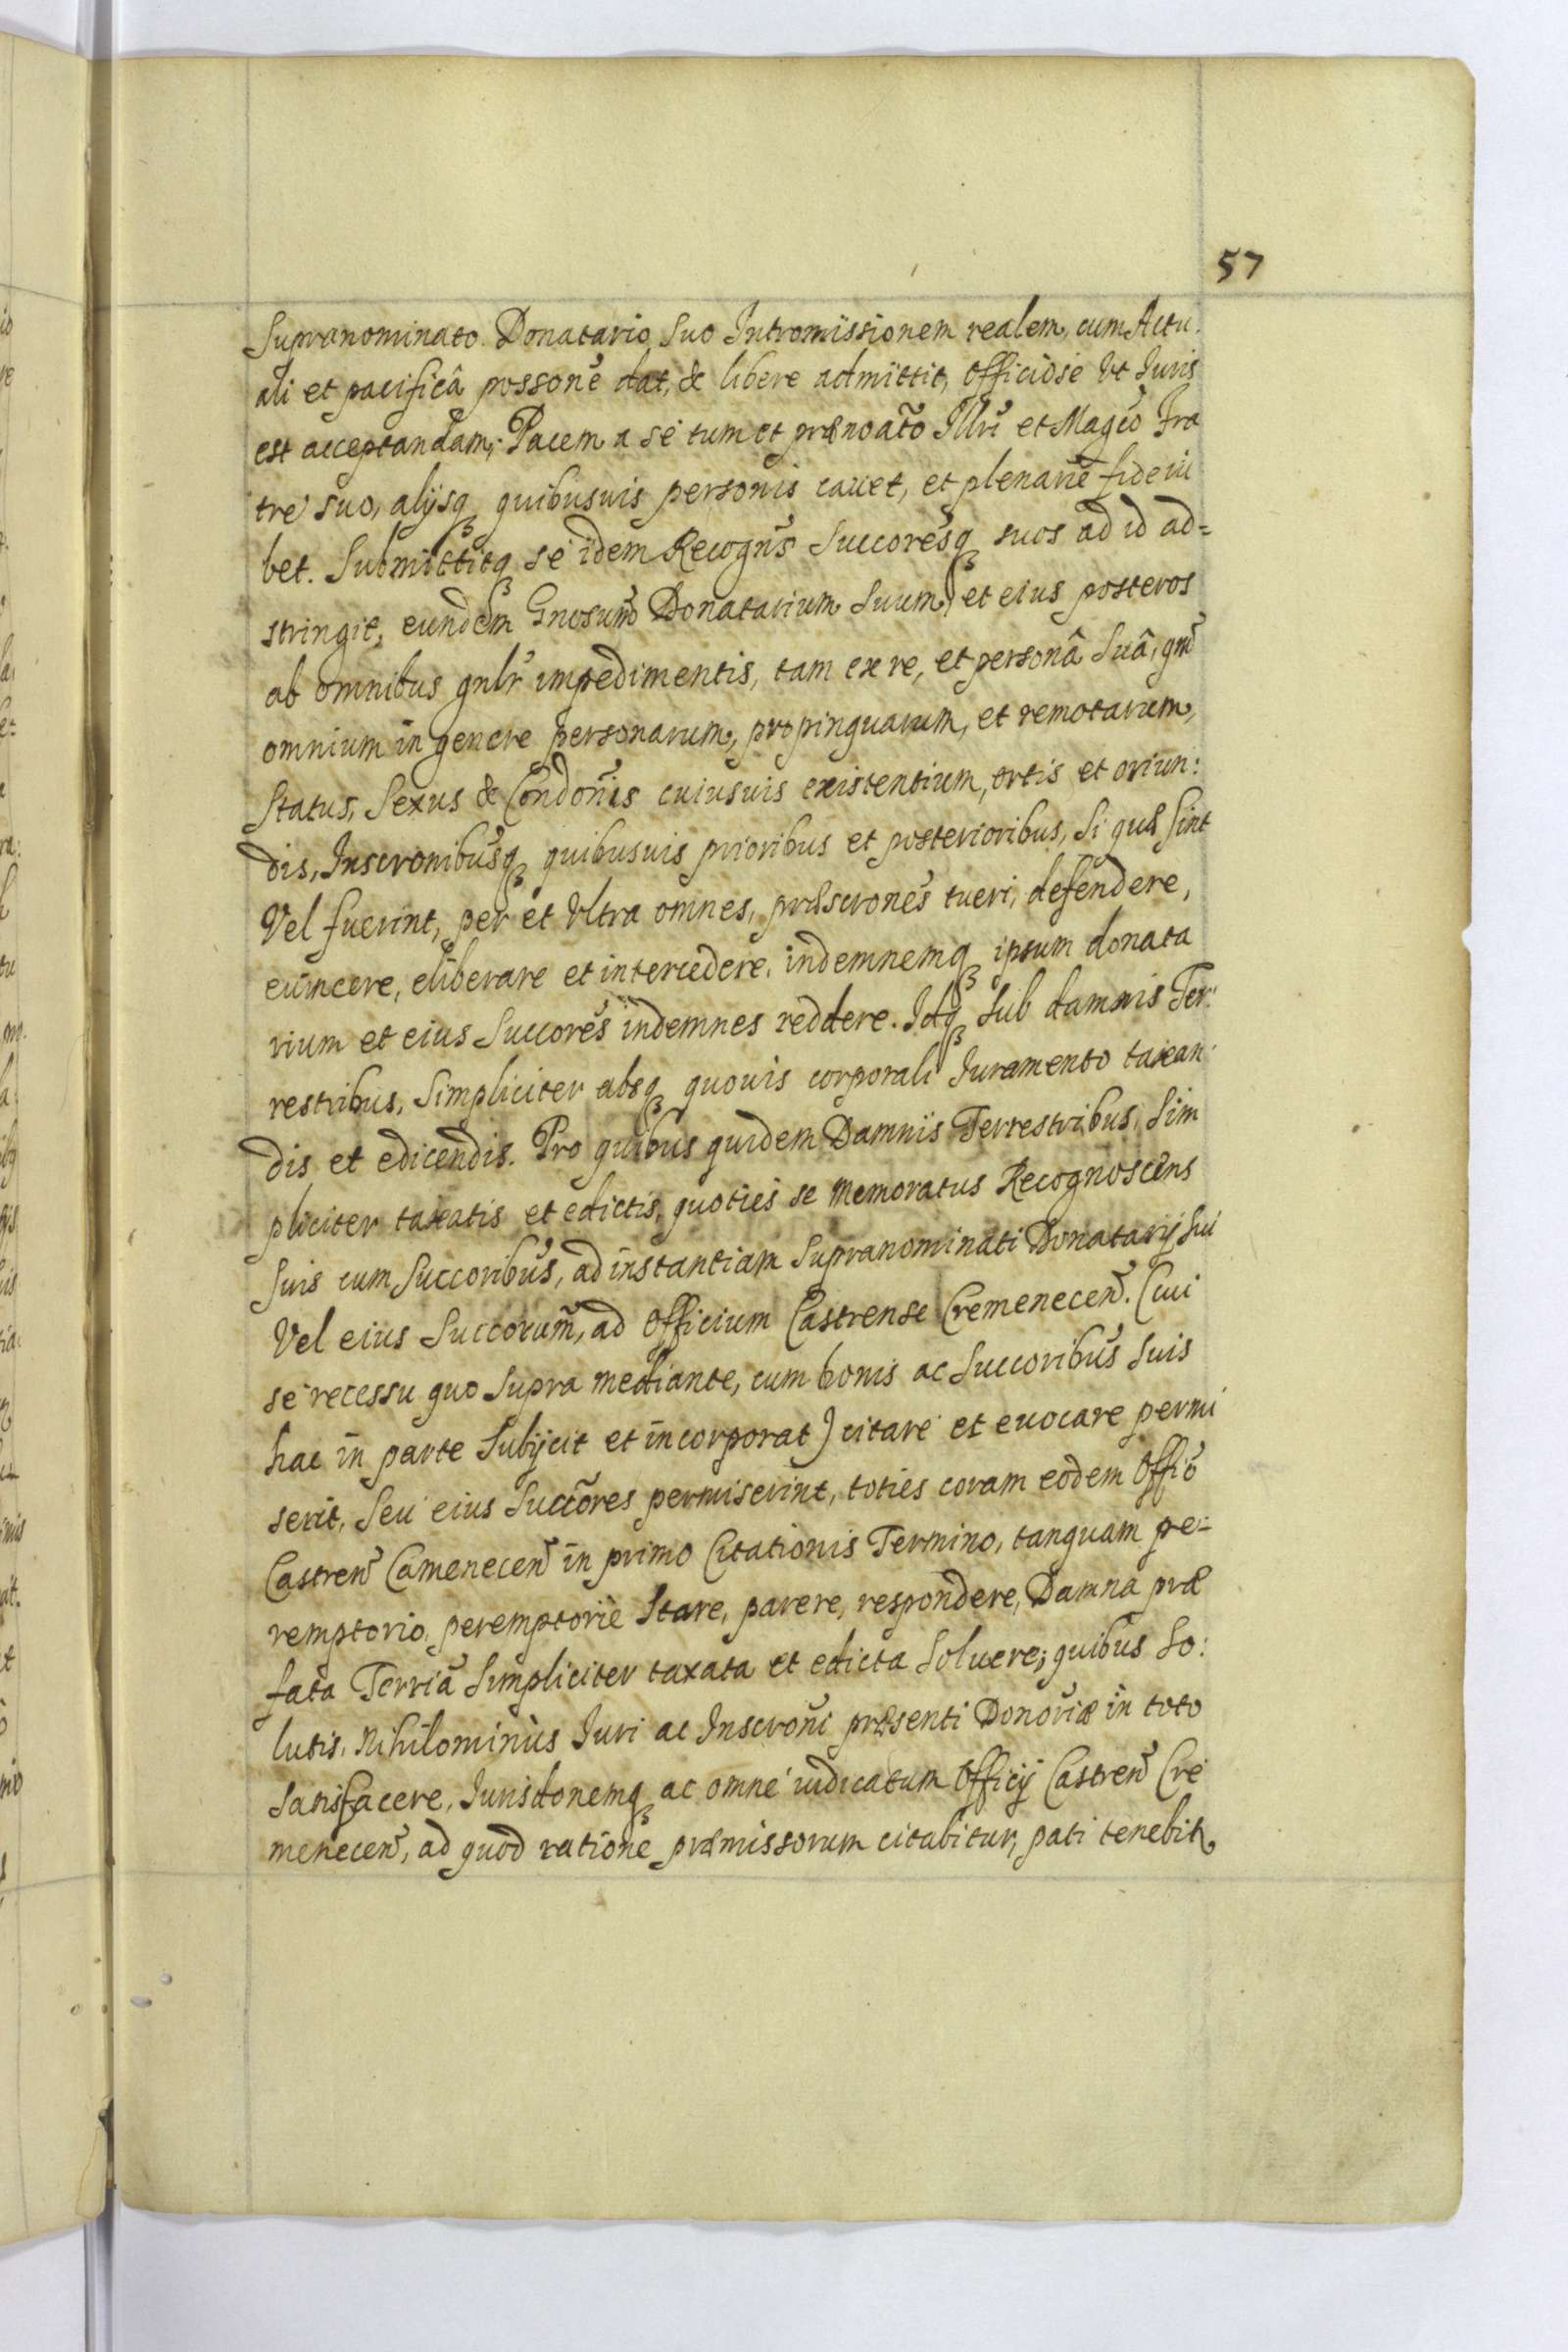 57
Supranominato Donatario Suo Intromissionem realem, cum Actu.
ali et pacificâ possonẽ dat, & libere admittit, Officiose Vt Iuris
est acceptandam; Pacem a se tum et prænoat̃o Illrĩ et Magc̃o Fra
tre suo, alijsq; quibusuis personis cauet, et plenarie fideiu
bet. Submittitq; se idem Recogñs Succoresq̃; suos ad id ad=
stringit, eundem Gnosum̃ Donatarium Suum, et eius posteros
ab omnibus gnlr̃ impedimentis, tam ex re, et personâ Suâ, qm̃
omnium in genere personarum, propinquarum, et remotarum,
Status, Sexus & Condonĩs cuiusuis existentium, ortis et oriun:
dis, Inscronibusq̃; quibusuis prioribus et posterioribus, Si quæ sint
Vel fuerint, per et Vltra omnes, præscronẽs tueri, defendere,
euincere, eliberare et intercedere, indemnemq; ipsum donata
rium et eius Succorẽs indemnes reddere. Idq; Sub damnis Ter:
restribus, Simpliciter absq; quouis corporali Iuramento taxan:
dis et edicendis. Pro quibus quidem Damnis Terrestribus, Sim
pliciter taxatis et edictis, quoties se memoratus Recognoscens
Suis cum Succoribũs, ad instantiam Supranominati Donatarij Sui
Vel eius Succorum̃, ad Officium Castrense Cremenecen̄. (Cui
se recessu quo Supra mediante, cum bonis ac Succoribũs Suis
hac in parte Subijcit et incorporat) citare et euocare permi
serit, Seu eius Succõres permiserint, toties coram eodem Offiõ
Castren̄ Camenecen̄ in primo Citationis Termino, tanquam pe=
remptorio, peremptorie Stare, parere, respondere, Damna præ
fata Terriã Simpliciter taxata et edicta Soluere; quibus So:
lutis, Nihilominùs Iuri ac Inscronĩ præsenti Donorĩæ in toto
Satisfacere, Iurisdonemq; ac omne iudicatum Officij Castren̄ Cre
menecen̄, ad quod ratione præmissorum citabitur, pati tenebit